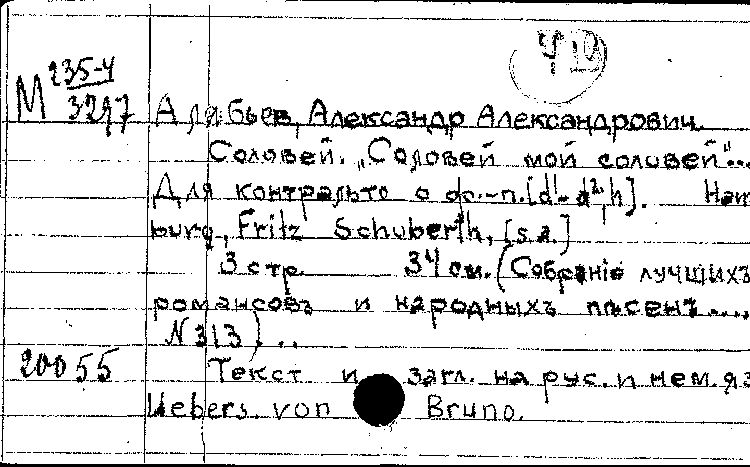 М 235-4
3297
Алябьев, Александр Александрович.
Соловей. „Соловей мой соловей"...
Для контральто с фо.-п. [d¹-d²,h]. Ham
burg, Fritz Schuberth, [s.a.]
3 стр. 34 см. (Собранiе лучшихъ
романсовъ и народныхъ пѣсенъ ....
N 313)...
20055
Текст и загл. на рус. и нем. яз
Uebers. von Bruno.